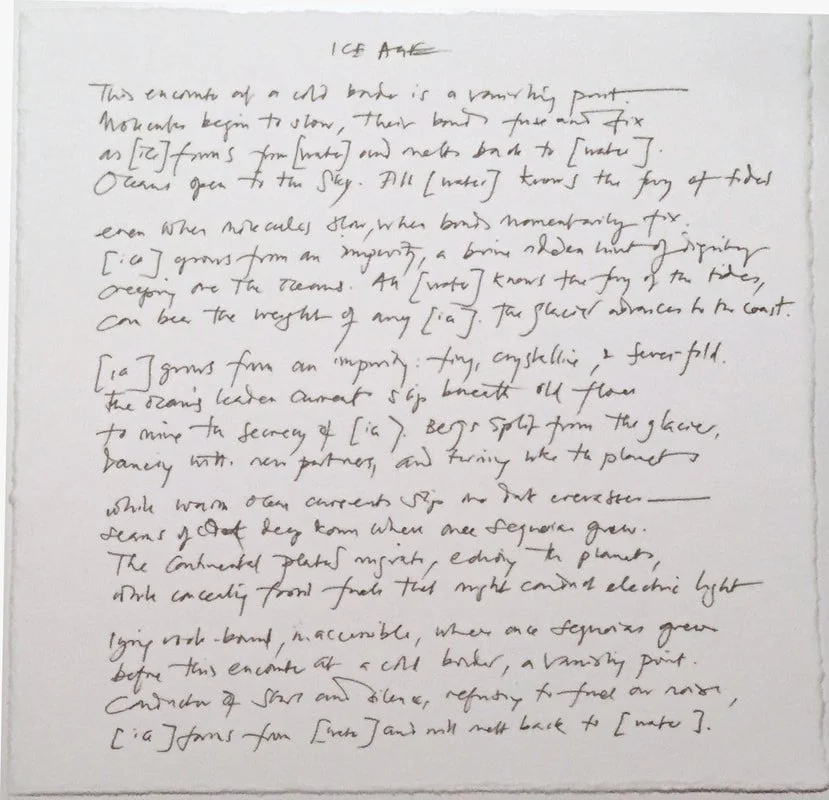 ICE AGE
This encounter at a cold border is a vanishing point —
Molecules begin to slow, their bonds fuse and fix
as [ice] forms from [water] and melts back to [water].
Oceans open to the sky. Still [water] knows the fury of tides
even when molecules slow, when bonds momentarily fix.
[ice] grows from an impurity, a brine sudden hint of dignity
creeping over the oceans. All [water] knows the fury of the tides,
can bear the weight of any [ice]. The glacier advances to the coast.
[ice] grows from an impurity: tiny, crystalline, & seven-fold.
The ocean's leaden currents slip beneath old floes
to mine the secrecy of [ice]. Bergs split from the glacier,
dancing with new partners, and turning like the planets
while warm ocean currents slip into dark crevasses —
seams of deep down where once sequoias grew.
The continental plates migrate, echoing the planets,
while concealing fossil fuels that might conduct electric light
lying rock-bound, inaccessible, where once sequoias grew
before this encounter at a cold border, a vanishing point.
Conductor of stars and silence, refusing to fuel our noise,
[ice] forms from [water] and will melt back to [water].